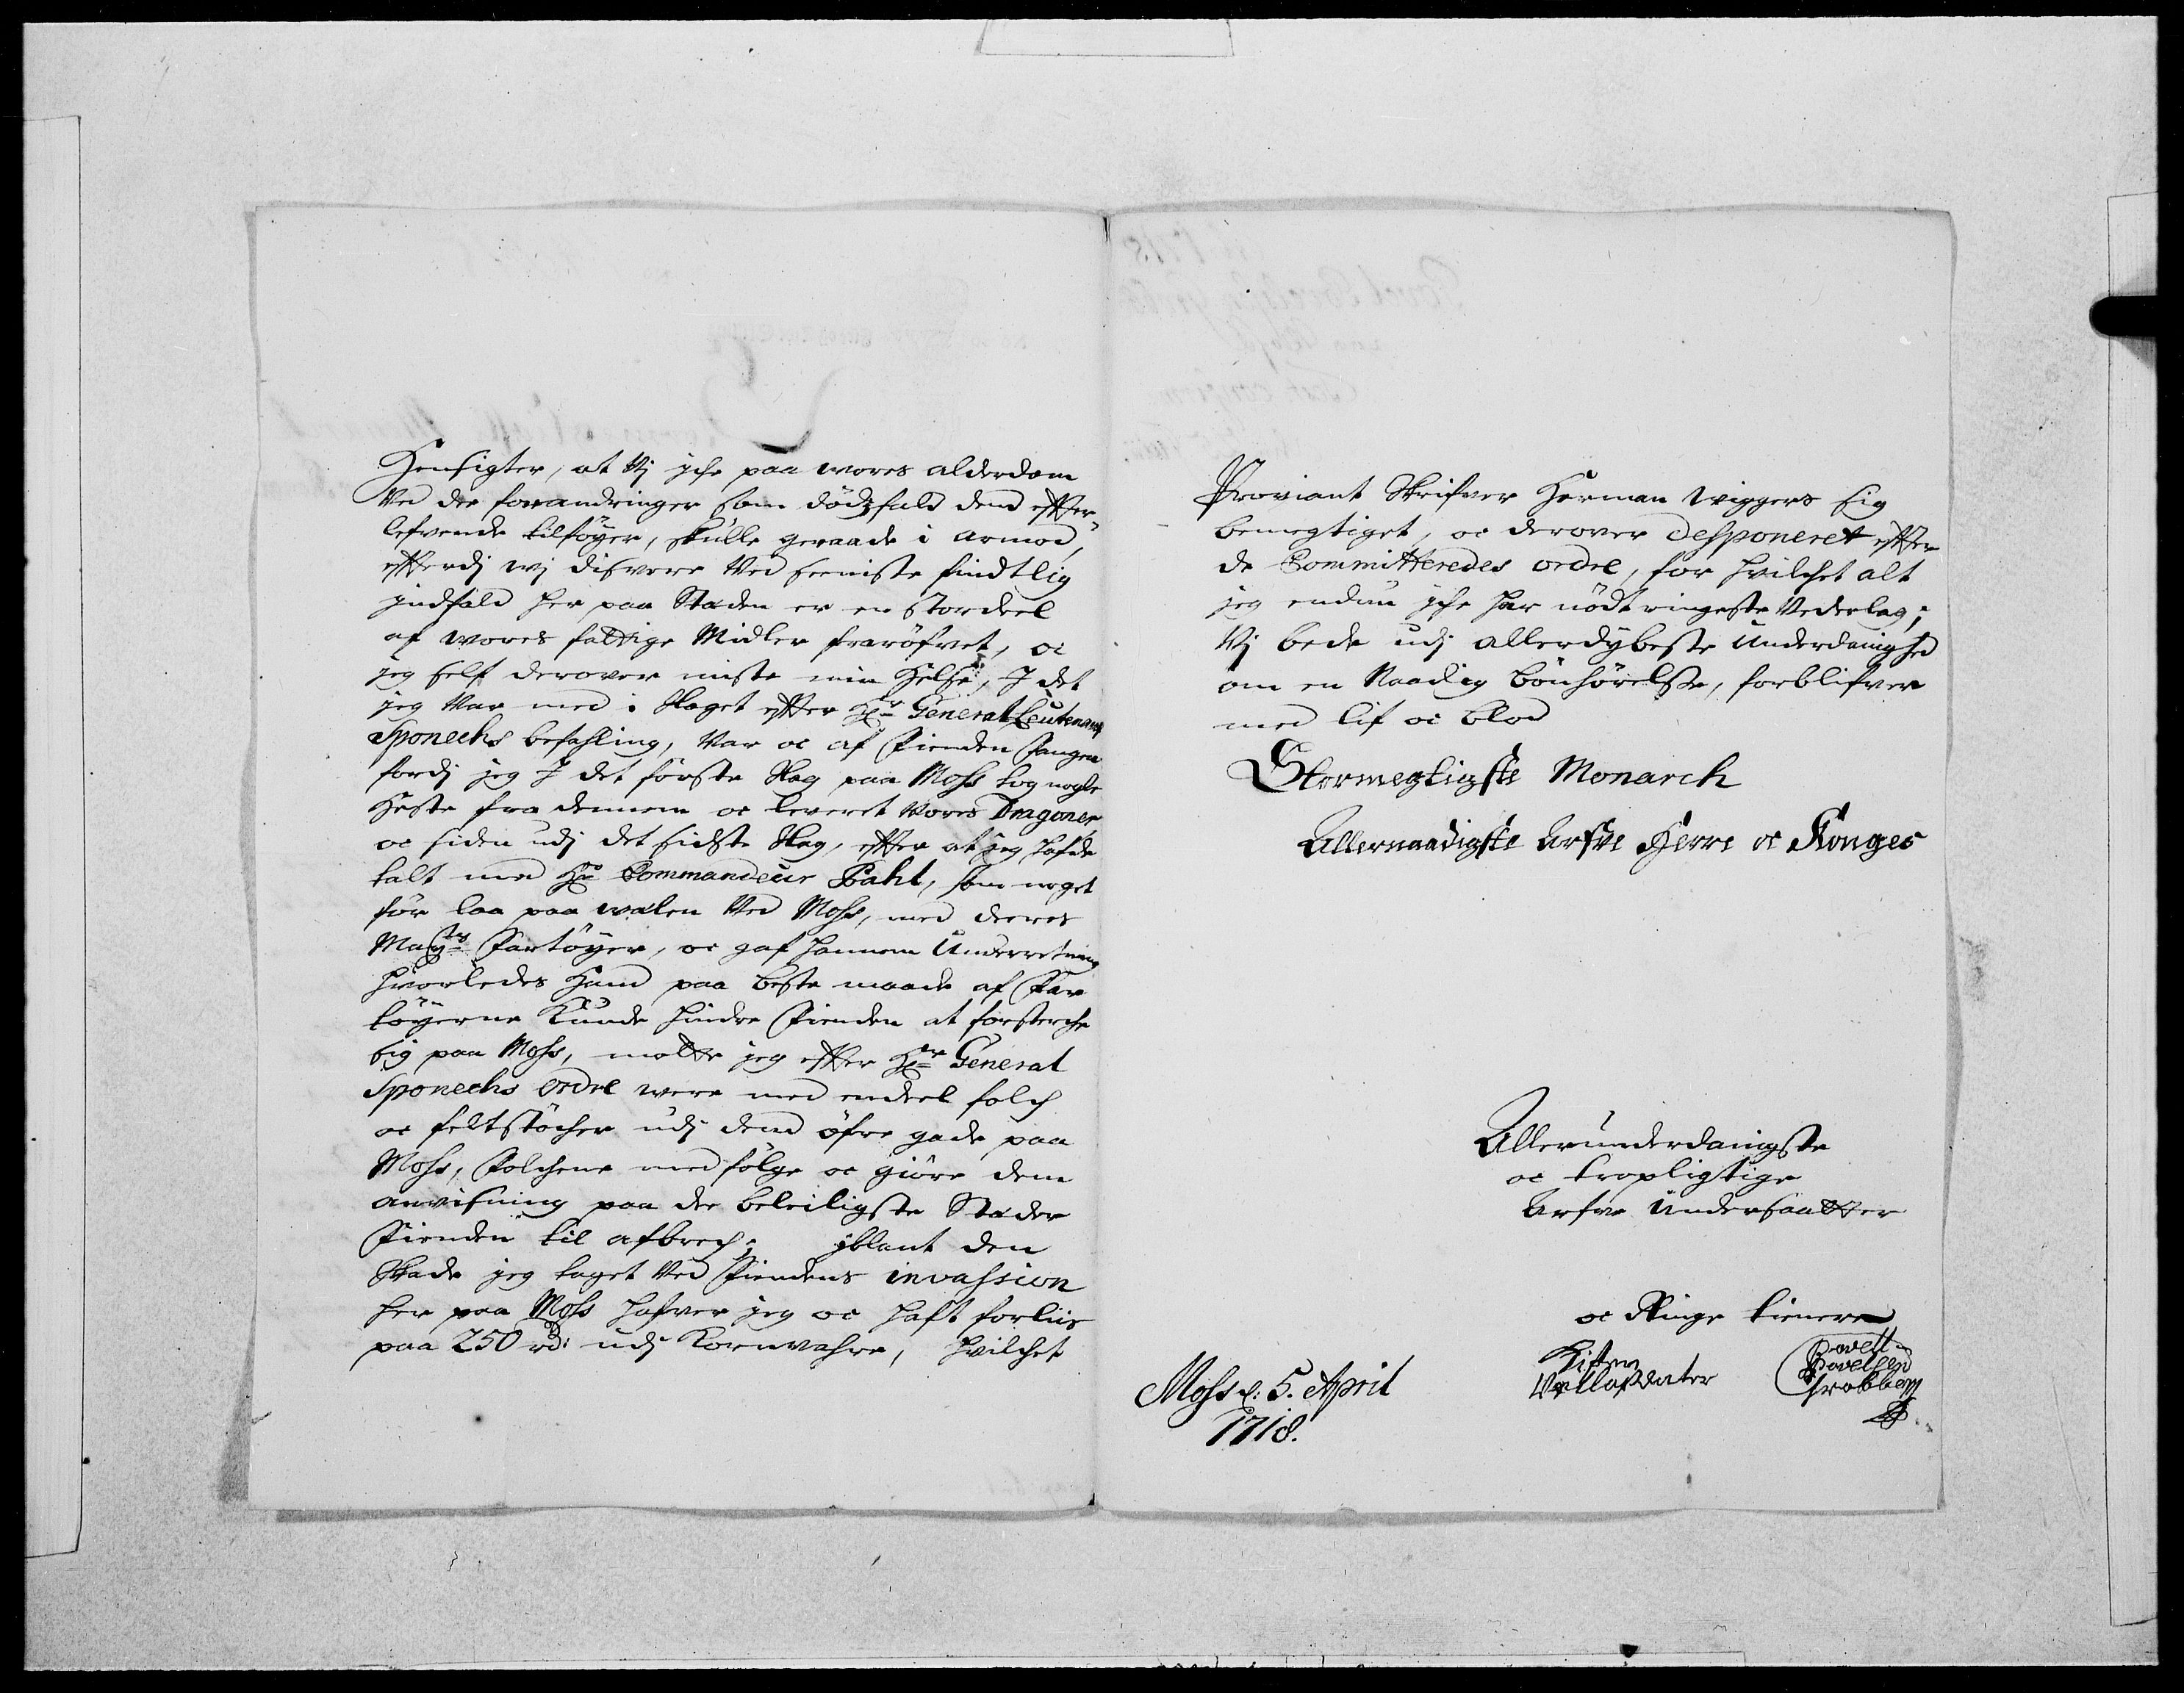 Hensigter, at Vj iche paa wores alderdom
Ved de forandringer som dödzfald dend effter-
lefvende tilföyer, skulle geraade i armod,
effterdj wj disvere Ved seeniste findtlig
indfald her paa Stæden er en stordeel
af wores fattige Midler fraröfvet, oc
jeg self derover miste min Helse, J det
jeg Var med i Slaget effter Hr General Leutenant
Sponechs befahling, Var oc af Fienden Fangen
fordj jeg J det förste Slag paa Moss tog nogle
Heste fra dennem oc leveret Vores Dragoner
oc siden udj det sidste Slag, effter at jeg hafde
talt med Hr Commandeur Paht, som noget
för laa paa walen Ved Moss, med deeres
Maysts Fartöyer, oc gaf hannem Underretning
hvorledes Hand paa beste maade af Far
töyerne Kunde hindre Fienden at forsterche
sig paa Moss, motte jeg effter Hr General
Sponechs ordre were med endeel folch
oc feltstöcher udj dend öfre gade paa
Moss, Folchene medfölge oc giöre dem
anvisning paa de beleiligste Stæder
Fienden til afbrech; jblant den
Skade jeg taget Ved Fiendens invassion
her paa Moss hafver jeg oc haft forliis
paa 250 rd: udj Kornvahre, hvilchet
Proviant Skrifver Herman Wiggers sig
bemegtiget, oc derover desponeret effter
de Committeredes ordre, for hvilchet alt
jeg endnu iche har nödt ringeste Vederlag;
Vj bede udj allerdybeste Underdanighed
om en Naadig bönhörelse, forblifver
med lif oc blod
Stormegtigste Monarch
Allernaadigste Arfve Herre oc Konges
Allerunderdanigste
oc tropligtige
Arfve Undersaatter
oc Ringe tienere
Kisten
Vellafsdater
Povell
Povelsen
Grobberg
Moss d: 5. April
1718.